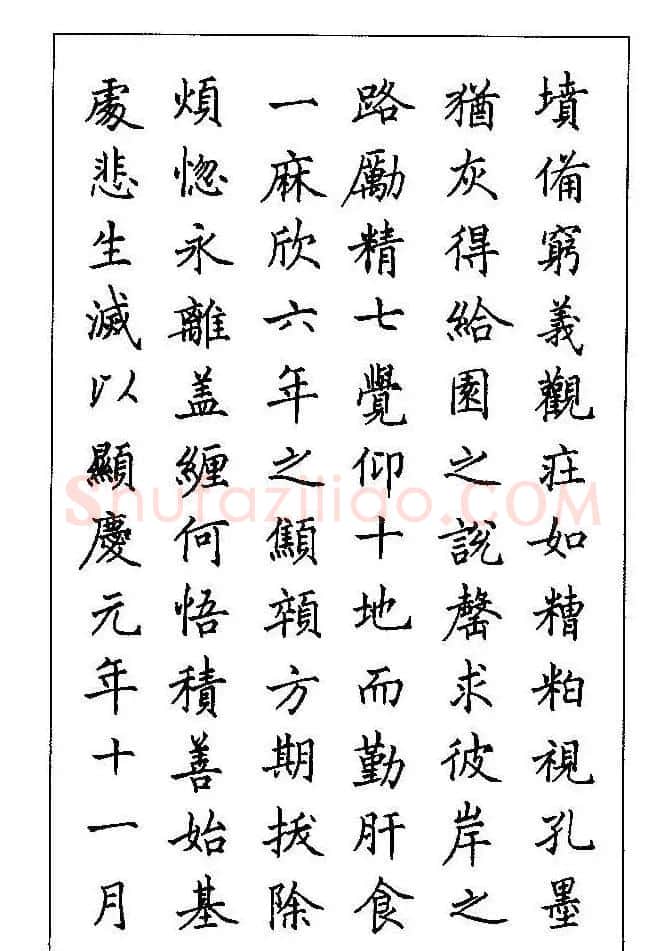 墳備窮義觀㽵如糟粕視孔墨
猶灰得給園之說罄求彼岸之
路勵精七覺仰十地而勤肝食
一麻欣六年之顦顇方期拔除
煩惚永離盖纏何悟積善始基
處悲生滅以顯慶元年十一月
Shufaziliao.COM